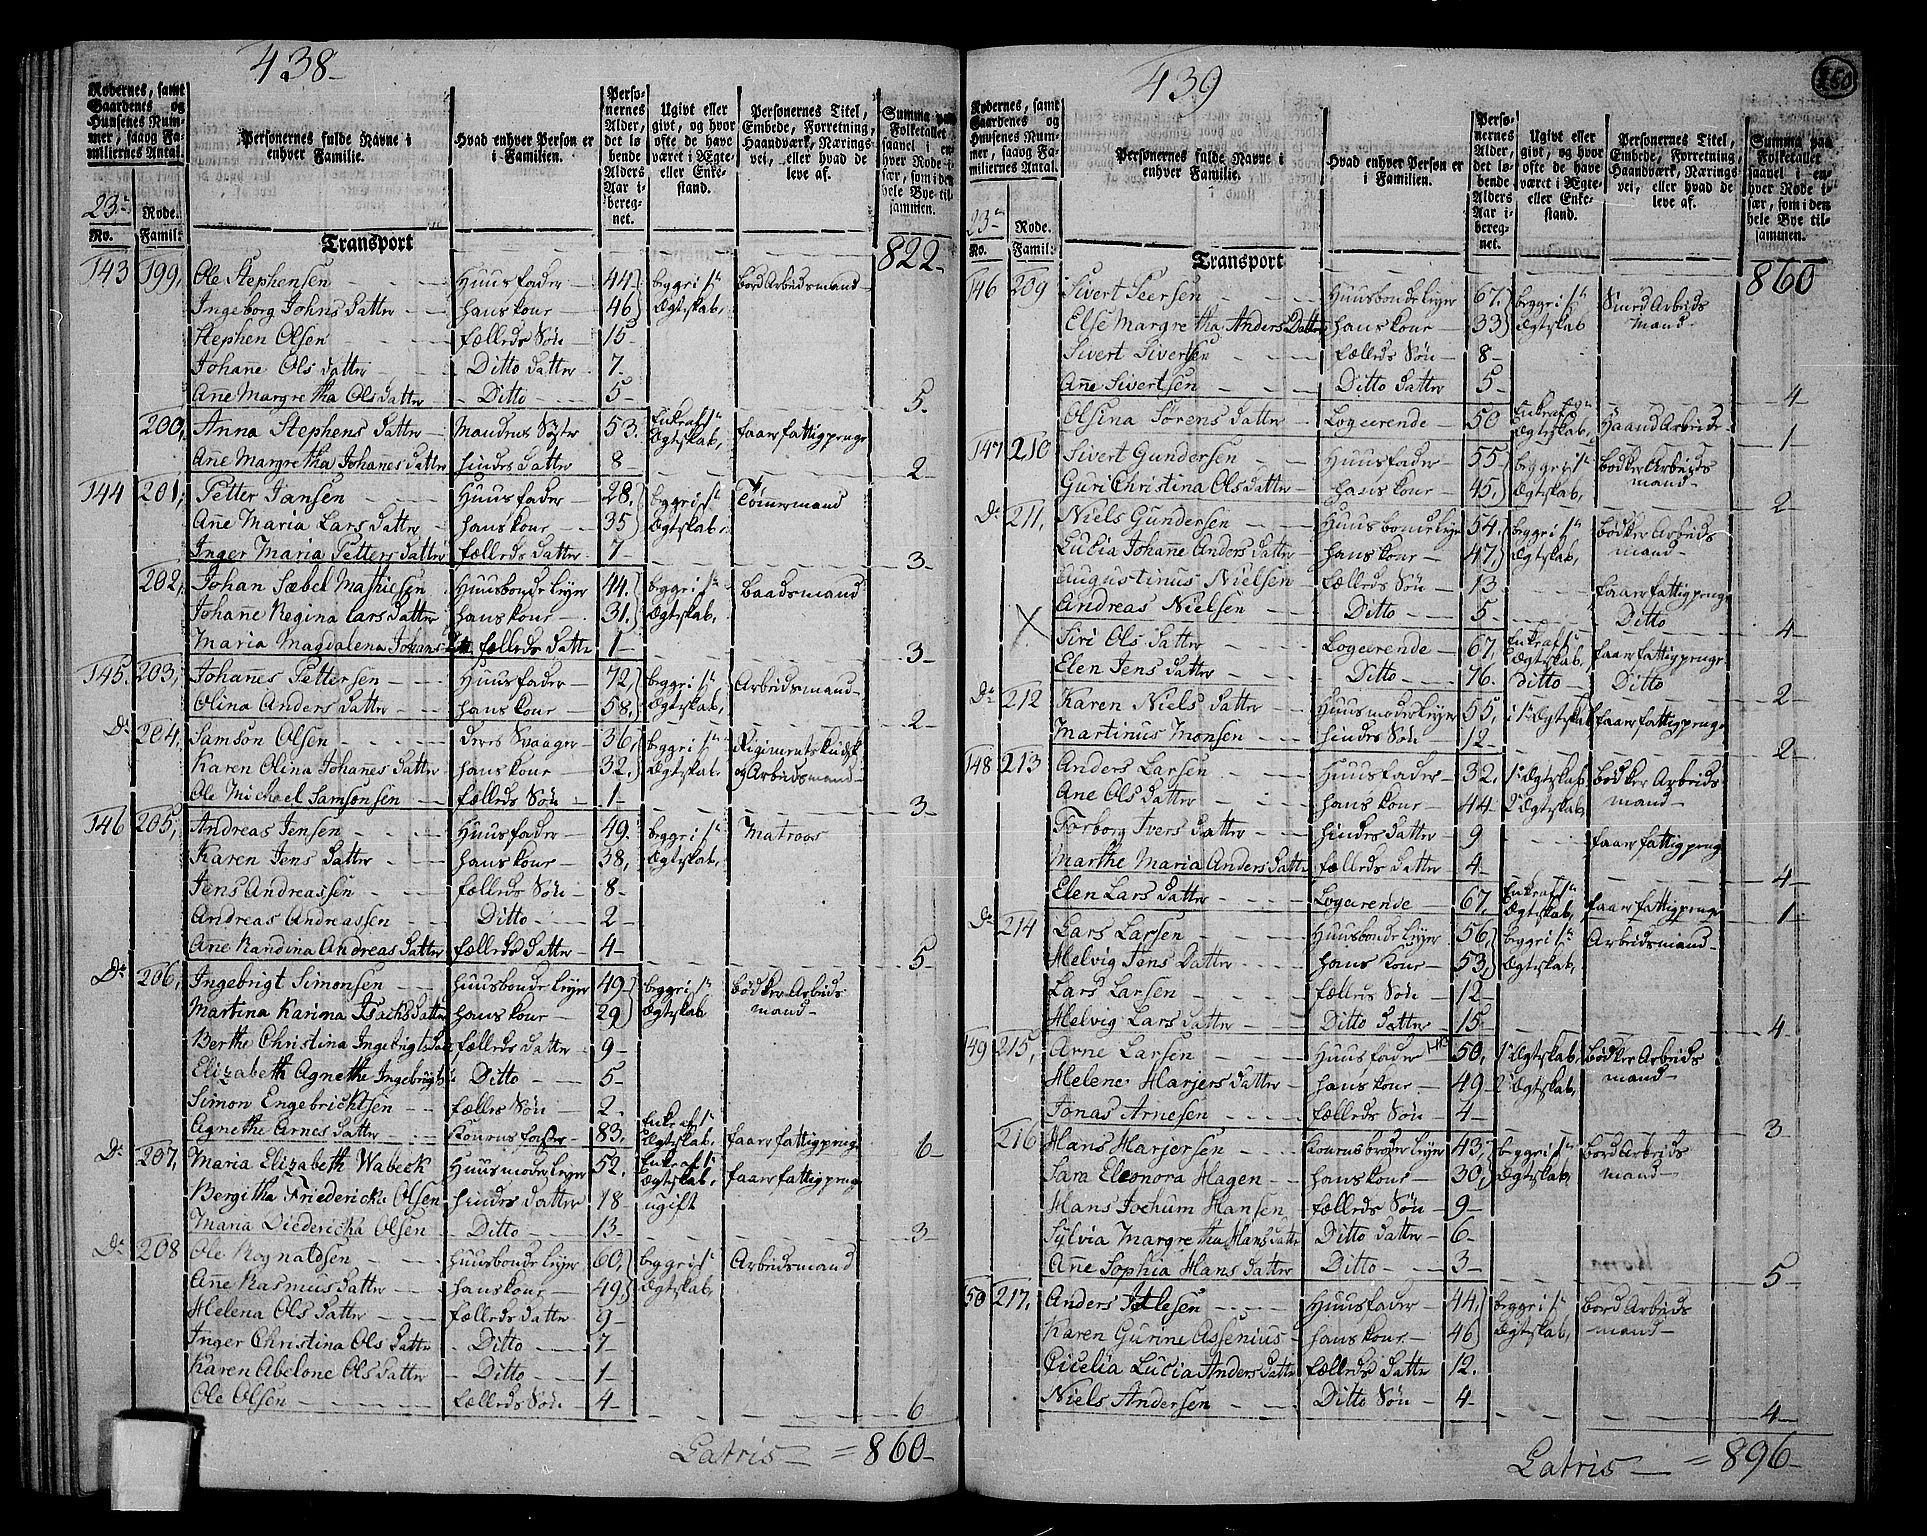 438-
Rodernes, samt Gaardenes og Huusenes Nummer, saavog Familiernes Antal.
Personernes fulde Navne i enhver Familie.
Hvad enhver Person er i Familien.
Personernes Alder, det løbende Alders Aar iberegnet.
Ugivt eller givt, og hvor ofte de have været i Ægte- eller Enkestand.
Personernes Titel, Embede, Forretning, Haandværk, Næringsvei, eller hvad de leve af.
Summa paa Folketallet saavel i enhver Rode især, som i den hele Bye tilsammen.
23de Rode.
No. Famil:
Transport 822-
143 199, Ole Stephensen Huusfader 44 begge i 1te Bord Arbeidsmand
Ingeborg Johns Datter hans kone 46 Ægteskab,
Stephen Olsen fælleds Søn 15-
Johañe Ols datter Ditto datter 7-
Añe Margretha Olsdatter Ditto 5- 5.
200, Anna Stephens Datter Mandens Søster 53. Enke af 1te Ægteskab, faaer fattigpenge
Añe Margretha Johañes Datter hindes datter 8- 2-
144 201, Petter Jansen Huusfader 28, begge i 1te Tømermand
Añe Maria Lars datter hans kone 35 Ægteskab,
Inger Maria Petters Datter fælleds datter 7- 3-
202, Johan Sæbel Mathiesen Huusbonde leyer 44. begge i 1te Baadsmand
Johañe Regina Lars datter hans kone 31. Ægteskab,
Maria Magdalena Johans Dtt. fælleds datter 1- 3-
145. 203, Johañes Pettersen Huusfader 72, begge i 1te Arbeidsmand
Olina Anders datter hans kone 58. Ægteskab, 2-
Do 204, Samson Olsen deres Svaager 36, begge i 1te Rigimentskudsk
Karen Olina Johañes datter hans kone 32. Ægteskab. og Arbeidsmand
Ole Michael Samsonsen fælleds Søn 1- 3-
146 205, Andreas Jensen Huusfader 49. begge i 1te Matroos
Karen Jens Datter hans kone 38, Ægteskab,
Jens Andreassen fælleds Søn 8-
Andreas Andreassen Ditto 2-
Ane Randina Andreas datter fælleds datter 4- 5-
Do 206, Ingebrigt Simonsen huusbonde leyer 49 begge i 1te Bødker Arbeids
Martina Karina Isachs datter hans kone 29 Ægteskab mand
Berthe Christina Ingebrigts dat fælleds datter 9-
Elizabeth Agnethe Ingebrigts Ditto 5-
Simon Engebrichtsen fælles Søn 2-
Agnethe Arnes datter Konens foster 83, Enke af 1te Ægteskab, faaer fattigpenge 6-
Do 207, Maria Elizabeth Wabeck Huusmoder leyer 52. Enke af 1te Ægteskab, faaer fattigpenge
Bergitha Friedericke Olsen hendes datter 18 ugift
Maria Diedericha Olsen Ditto 13- 3-
Do 208 Ole Rognaldsen huusbonde leyer 60, begge i 1te Arbeidsmand
Añe Rasmusdatter hans kone 49, Ægteskab,
Helena Ols datter fælleds datter 9-
Inger Christina Ols datter Ditto 7-
Karen Abelone Ols datter Ditto 1-
Ole Olsen fælleds Søn 4- 6
Latris = 860-
439
Rodernes, samt Gaardenes og Huusenes Nummer, saavog Familiernes Antal.
Personernes fulde Navne i enhver Familie.
Hvad enhver Person er i Familien.
Personernes Alder, det løbende Alders Aar iberegnet.
Ugivt eller givt, og hvor ofte de have været i Ægte- eller Enkestand.
Personernes Titel, Embede, Forretning, Haandværk, Næringsvei, eller hvad de leve af.
Summa paa Folketallet saavel i enhver Rode især, som i den hele Bye tilsammen.
23de Rode.
No. Famil:
Transport 860
146 209 Sivert Seersen Huusbonde leyer 67, begge i 1te Smed Arbeids
Else Margretha Anders Datter hans kone 33 Ægteskab mand
Sivert Sivertsen fælleds Søn 8-
Añe Sivertsen Ditto datter 5- 4
Olsina Sørens datter Logerende 50 Enke af 2 Ægteskab, Haand Arbeide 1-
147 210 Sivert Gundersen Huusfader 55- begge i 1te Bødker Arbeids
Guri Christina Olsdatter hans kone 45, Ægteskab, mand 2-
Do 211, Niels Gundersen Huusbonde leyer 54. begge i 1te Bødker Arbeids
Lucia Johañe Anders Datter hans kone 47, Ægteskab, mand
Augustinus Nielsen fælleds Søn 13 faaer fattigpenge
Andreas Nielsen Ditto 5- Ditto 4-
X Siri Ols Datter Logerende 67, Enke af 1te Ægteskab, faaer fattigpenge
Elen Jens datter Ditto 76. Ditto Ditto 2-
Do 212 Karen Niels datter Huusmoder leyer 55, i 1te Ægteskab faaer fattigpenge
Martinus Monsen hindes Søn 12- 2-
148 213 Anders Larsen Huusfader 32. 1te Ægteskab, Bødker Arbeids
Ane Ols datter hans kone 44 2de Ægteskab, mand
Torborg Ivers datter hindes datter 9 faaer fattigpenge
Marthe Maria Anders datt fælleds datter 4- 4-
Elen Lars datter Logerende 67, Enke af 1te Ægteskab, faaer fattigpenge 1-
Do 214 Lars Larsen Huusbonde leyer 56, begge i 1te Arbeidsmand
Helvig Jens Datter hans kone 53, Ægteskab,
Lars Larsen fælleds Søn 12-
Helvig Lars datter Ditto datter 15- 4-
149 215, Arne Larsen Huusfader 50, 1te Ægteskab, Bødker Arbeids
Helene Harjers datter hans kone 49- 2de Ægteskab, mand
Jonas Arnesen fælleds Søn 4- 3-
216 Hans Harjersen Konens broder leyer 43, begge i 1te Bord Arbeids
Sara Eleonora Hagen hans kone 30, Ægteskab, mand
Hans Jochum Hansen fælleds Søn 9-
Sylvia Margretha Hans datter Ditto datter 6-
Añe Sophia Hans datter Ditto 3- 5-
50 217, Anders Itlesen Huusfader 44, begge i 1te Bord Arbeids
Karen Gurine Assenius hans kone 46 Ægteskab, mand
Cicelia Lucia Anders datter fælleds datter 12.
Niels Andersen Ditto Søn 4- 4-
Latris = 896-